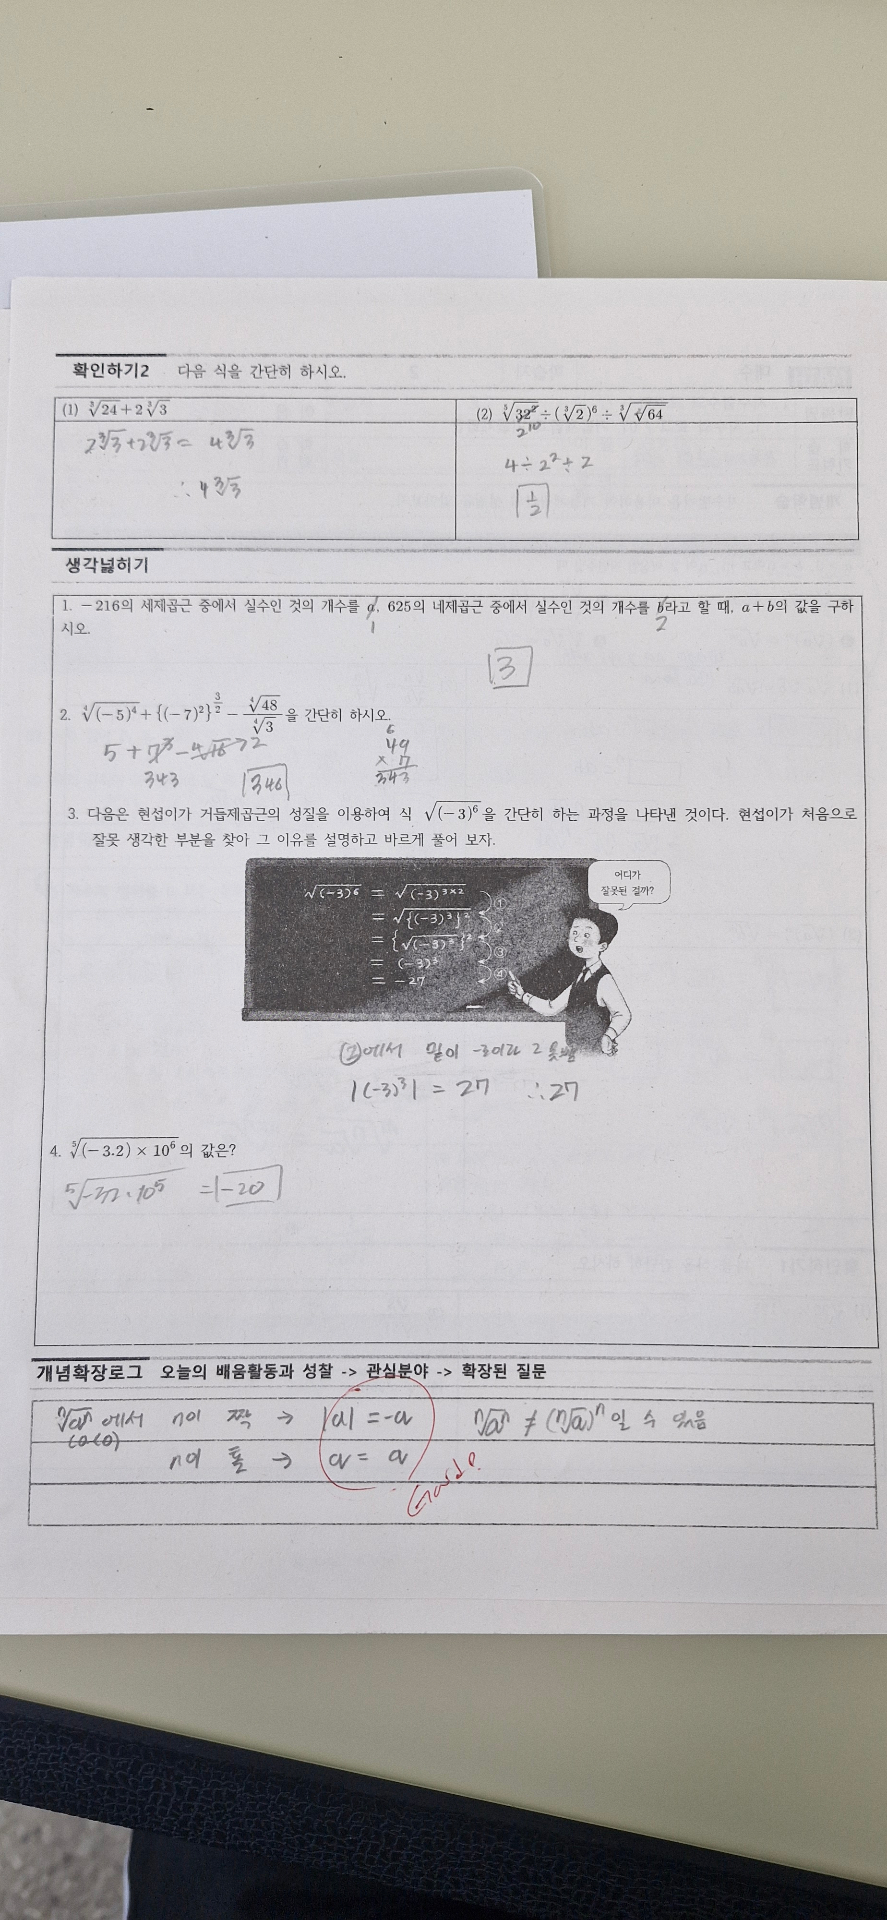 확인하기2 다음 식을 간단히 하시오.
(1) ∛24 + 2∛3
2∛3 + 2∛3 = 4∛3
∴ 4∛3
(2) ⁵√32² ÷ (∛2)⁶ ÷ ∛√64
2¹⁰
4 ÷ 2² ÷ 2
1/2
생각넓히기
1. −216의 세제곱근 중에서 실수인 것의 개수를 a, 625의 네제곱근 중에서 실수인 것의 개수를 b라고 할 때, a+b의 값을 구하
시오.
1 2
3
2. ⁴√(−5)⁴ + {(−7)²}^(3/2) − ⁴√48/⁴√3 을 간단히 하시오.
5 + 7³ − ⁴√16 → 2
343
346
6
49
× 7
343
3. 다음은 현섭이가 거듭제곱근의 성질을 이용하여 식 √(−3)⁶ 을 간단히 하는 과정을 나타낸 것이다. 현섭이가 처음으로
잘못 생각한 부분을 찾아 그 이유를 설명하고 바르게 풀어 보자.
√(−3)⁶ = √(−3)^(3×2)
= √{(−3)³}² ①
= {√(−3)³}² ②
= (−3)³ ③
= −27 ④
어디가
잘못된 걸까?
②에서 밑이 -3이라
|(-3)³| = 27 ∴ 27
4. ⁵√(−3.2) × 10⁶ 의 값은?
⁵√-32·10⁵ = -20
개념확장로그 오늘의 배움활동과 성찰 -> 관심분야 -> 확장된 질문
ⁿ√aⁿ 에서 n이 짝 → |a| = -a ⁿ√aⁿ ≠ (ⁿ√a)ⁿ 일 수 있음
(a<0)
n이 홀 → a = a